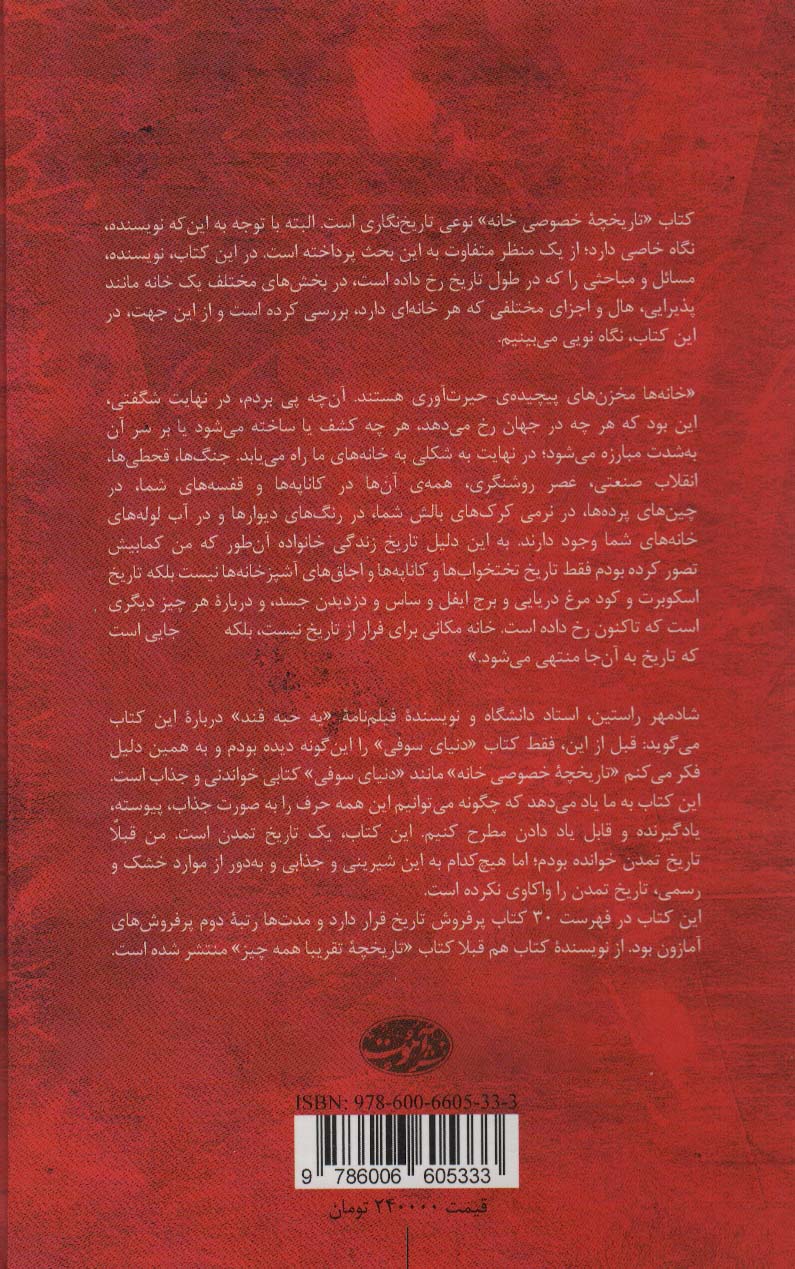 کتاب «تاریخچهٔ خصوصی خانه» نوعی تاریخ‌نگاری است. البته با توجه به این‌که نویسنده،
نگاه خاصی دارد؛ از یک منظر متفاوت به این بحث پرداخته است. در این کتاب، نویسنده،
مسائل و مباحثی را که در طول تاریخ رخ داده است، در بخش‌های مختلف یک خانه مانند
پذیرایی، هال و اجزای مختلفی که هر خانه‌ای دارد، بررسی کرده است و از این جهت، در
این کتاب، نگاه نویی می‌بینیم.
«خانه‌ها مخزن‌های پیچیده‌ی حیرت‌آوری هستند. آن‌چه پی بردم، در نهایت شگفتی،
این بود که هر چه در جهان رخ می‌دهد، هر چه کشف یا ساخته می‌شود یا بر سر آن
به‌شدت مبارزه می‌شود؛ در نهایت به شکلی به خانه‌های ما راه می‌یابد. جنگ‌ها، قحطی‌ها،
انقلاب صنعتی، عصر روشنگری، همه‌ی آن‌ها در کاناپه‌ها و قفسه‌های شما، در
چین‌های پرده‌ها، در نرمی کرک‌های بالش شما، در رنگ‌های دیوارها و در آب لوله‌های
خانه‌های شما وجود دارند. به این دلیل تاریخ زندگی خانواده آن‌طور که من کمابیش
تصور کرده بودم فقط تاریخ تختخواب‌ها و کاناپه‌ها و اجاق‌های آشپزخانه‌ها نیست بلکه تاریخ
اسکوبرت و کود مرغ دریایی و برج ایفل و ساس و دزدیدن جسد، و دربارهٔ هر چیز دیگری
است که تاکنون رخ داده است. خانه مکانی برای فرار از تاریخ نیست، بلکه جایی است
که تاریخ به آن‌جا منتهی می‌شود.»
شادمهر راستین، استاد دانشگاه و نویسندهٔ فیلم‌نامهٔ «یه حبه قند» دربارهٔ این کتاب
می‌گوید: قبل از این، فقط کتاب «دنیای سوفی» را این‌گونه دیده بودم و به همین دلیل
فکر می‌کنم «تاریخچهٔ خصوصی خانه» مانند «دنیای سوفی» کتابی خواندنی و جذاب است.
این کتاب به ما یاد می‌دهد که چگونه می‌توانیم این همه حرف را به صورت جذاب، پیوسته،
یادگیرنده و قابل یاد دادن مطرح کنیم. این کتاب، یک تاریخ تمدن است. من قبلاً
تاریخ تمدن خوانده بودم؛ اما هیچ‌کدام به این شیرینی و جذابی و به‌دور از موارد خشک و
رسمی، تاریخ تمدن را واکاوی نکرده است.
این کتاب در فهرست ۳۰ کتاب پرفروش تاریخ قرار دارد و مدت‌ها رتبهٔ دوم پرفروش‌های
آمازون بود. از نویسندهٔ کتاب هم قبلا کتاب «تاریخچهٔ تقریبا همه چیز» منتشر شده است.
ISBN: 978-600-6605-33-3
9 786006 605333
قیمت ۲۴۰۰۰۰ تومان